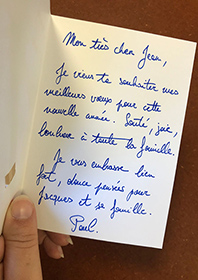 Mon très cher Jean,
Je viens te souhaiter mes
meilleurs vœux pour cette
nouvelle année. Santé, joie,
bonheur à toute la famille.
Je vous embrasse bien
fort, douce pensées pour
Jacques et sa famille.
Paul.